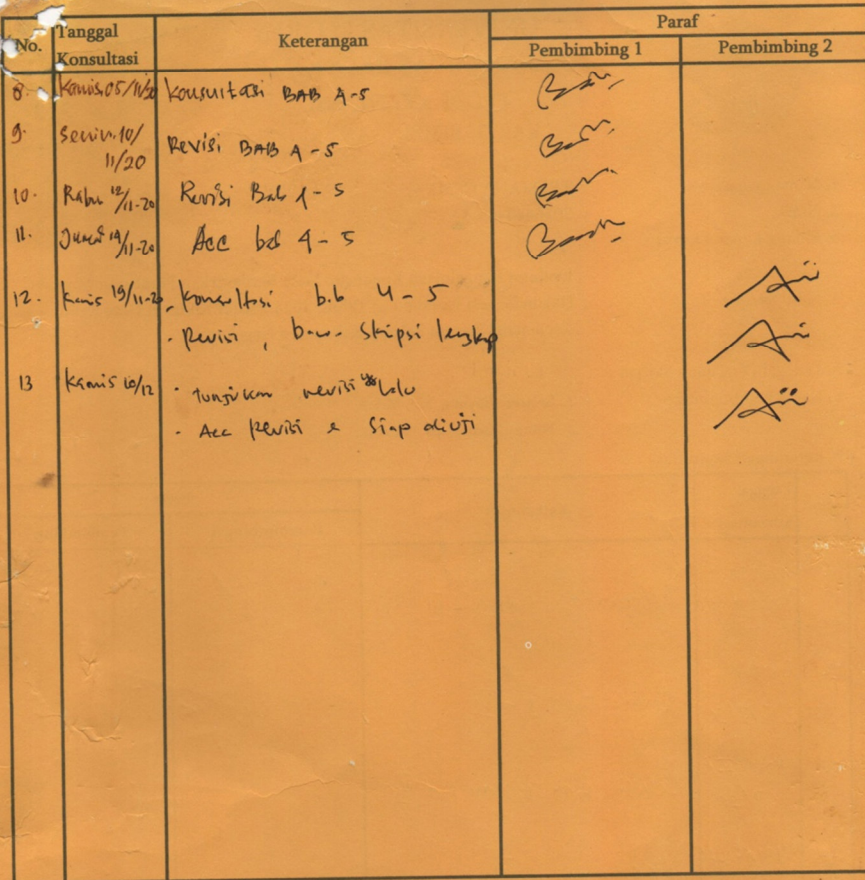 No.
Tanggal
Konsultasi
Keterangan
Paraf
Pembimbing 1
Pembimbing 2
8. Kamis, 05/11/20 Konsultasi BAB 4-5
9. Senin, 10/
11/20 Revisi BAB 4-5
10. Rabu 12/11-20 Revisi Bab 4-5
11. Jumat 14/11-20 Acc bab 4-5
12. Kamis 19/11-20 - Konsultasi bab 4-5
- Revisi, Skripsi lengkap
13 Kamis 10/12 - tunjukan revisi yg lalu
- Acc Revisi & Siap diuji